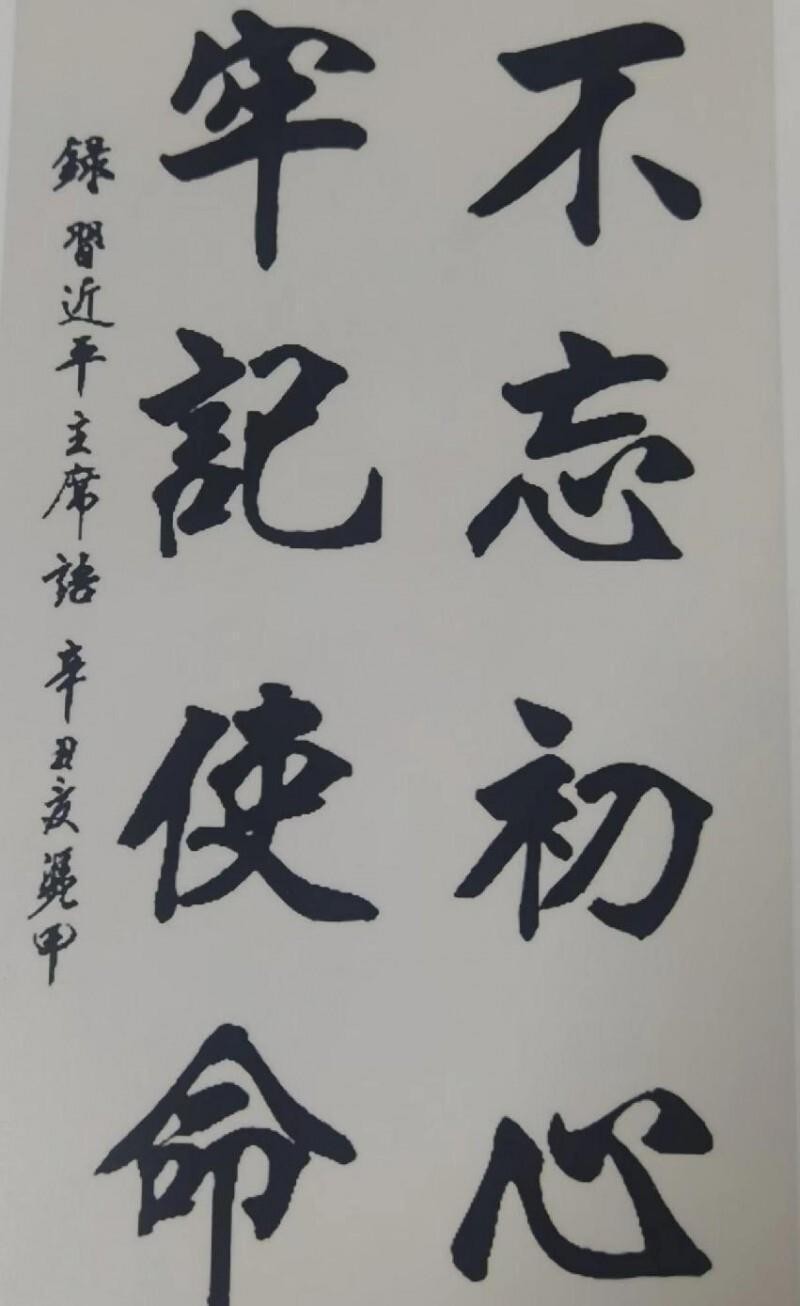 不忘初心
牢記使命
錄習近平主席語 辛丑 甲